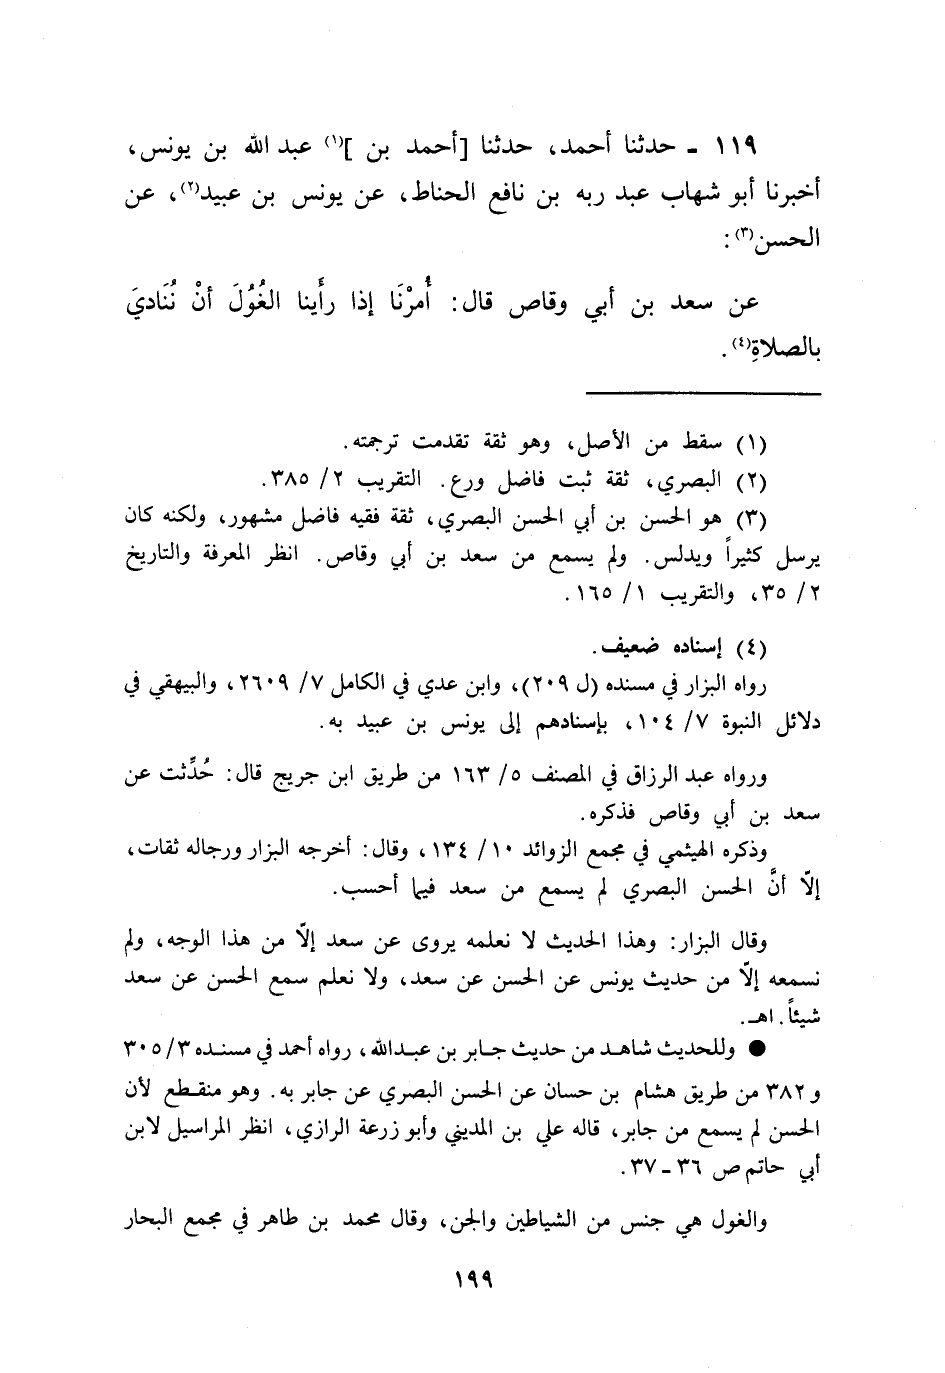 ١١٩ - حدثنا أحمد، حدثنا [أحمد بن](١) عبد الله بن يونس،
أخبرنا أبو شهاب عبد ربه بن نافع الحناط، عن يونس بن عبيد(٢)، عن
الحسن(٣):
عن سعد بن أبي وقاص قال: أُمرْنَا إذا رأَينا الغُوُلَ أنْ نُنَاديَ
بالصلاةِ(٤).
(١) سقط من الأصل، وهو ثقة تقدمت ترجمته.
(٢) البصري، ثقة ثبت فاضل ورع. التقريب ٢/ ٣٨٥.
(٣) هو الحسن بن أبي الحسن البصري، ثقة فقيه فاضل مشهور، ولكنه كان
يرسل كثيراً ويدلس. ولم يسمع من سعد بن أبي وقاص. انظر المعرفة والتاريخ
٢/ ٣٥، والتقريب ١/ ١٦٥.
(٤) إسناده ضعيف.
رواه البزار في مسنده (ل ٢٠٩)، وابن عدي في الكامل ٧/ ٢٦٠٩، والبيهقي في
دلائل النبوة ٧/ ١٠٤، بإسنادهم إلى يونس بن عبيد به.
ورواه عبد الرزاق في المصنف ٥/ ١٦٣ من طريق ابن جريج قال: حُدِّثت عن
سعد بن أبي وقاص فذكره.
وذكره الهيثمي في مجمع الزوائد ١٠/ ١٣٤، وقال: أخرجه البزار ورجاله ثقات،
إلّا أنَّ الحسن البصري لم يسمع من سعد فيما أحسب.
وقال البزار: وهذا الحديث لا نعلمه يروى عن سعد إلّا من هذا الوجه، ولم
نسمعه إلّا من حديث يونس عن الحسن عن سعد، ولا نعلم سمع الحسن عن سعد
شيئاً. اهـ.
● وللحديث شاهد من حديث جابر بن عبدالله، رواه أحمد في مسنده ٣/ ٣٠٥
و ٣٨٢ من طريق هشام بن حسان عن الحسن البصري عن جابر به. وهو منقطع لأن
الحسن لم يسمع من جابر، قاله علي بن المديني وأبو زرعة الرازي، انظر المراسيل لابن
أبي حاتم ص ٣٦ - ٣٧.
والغول هي جنس من الشياطين والجن، وقال محمد بن طاهر في مجمع البحار
١٩٩